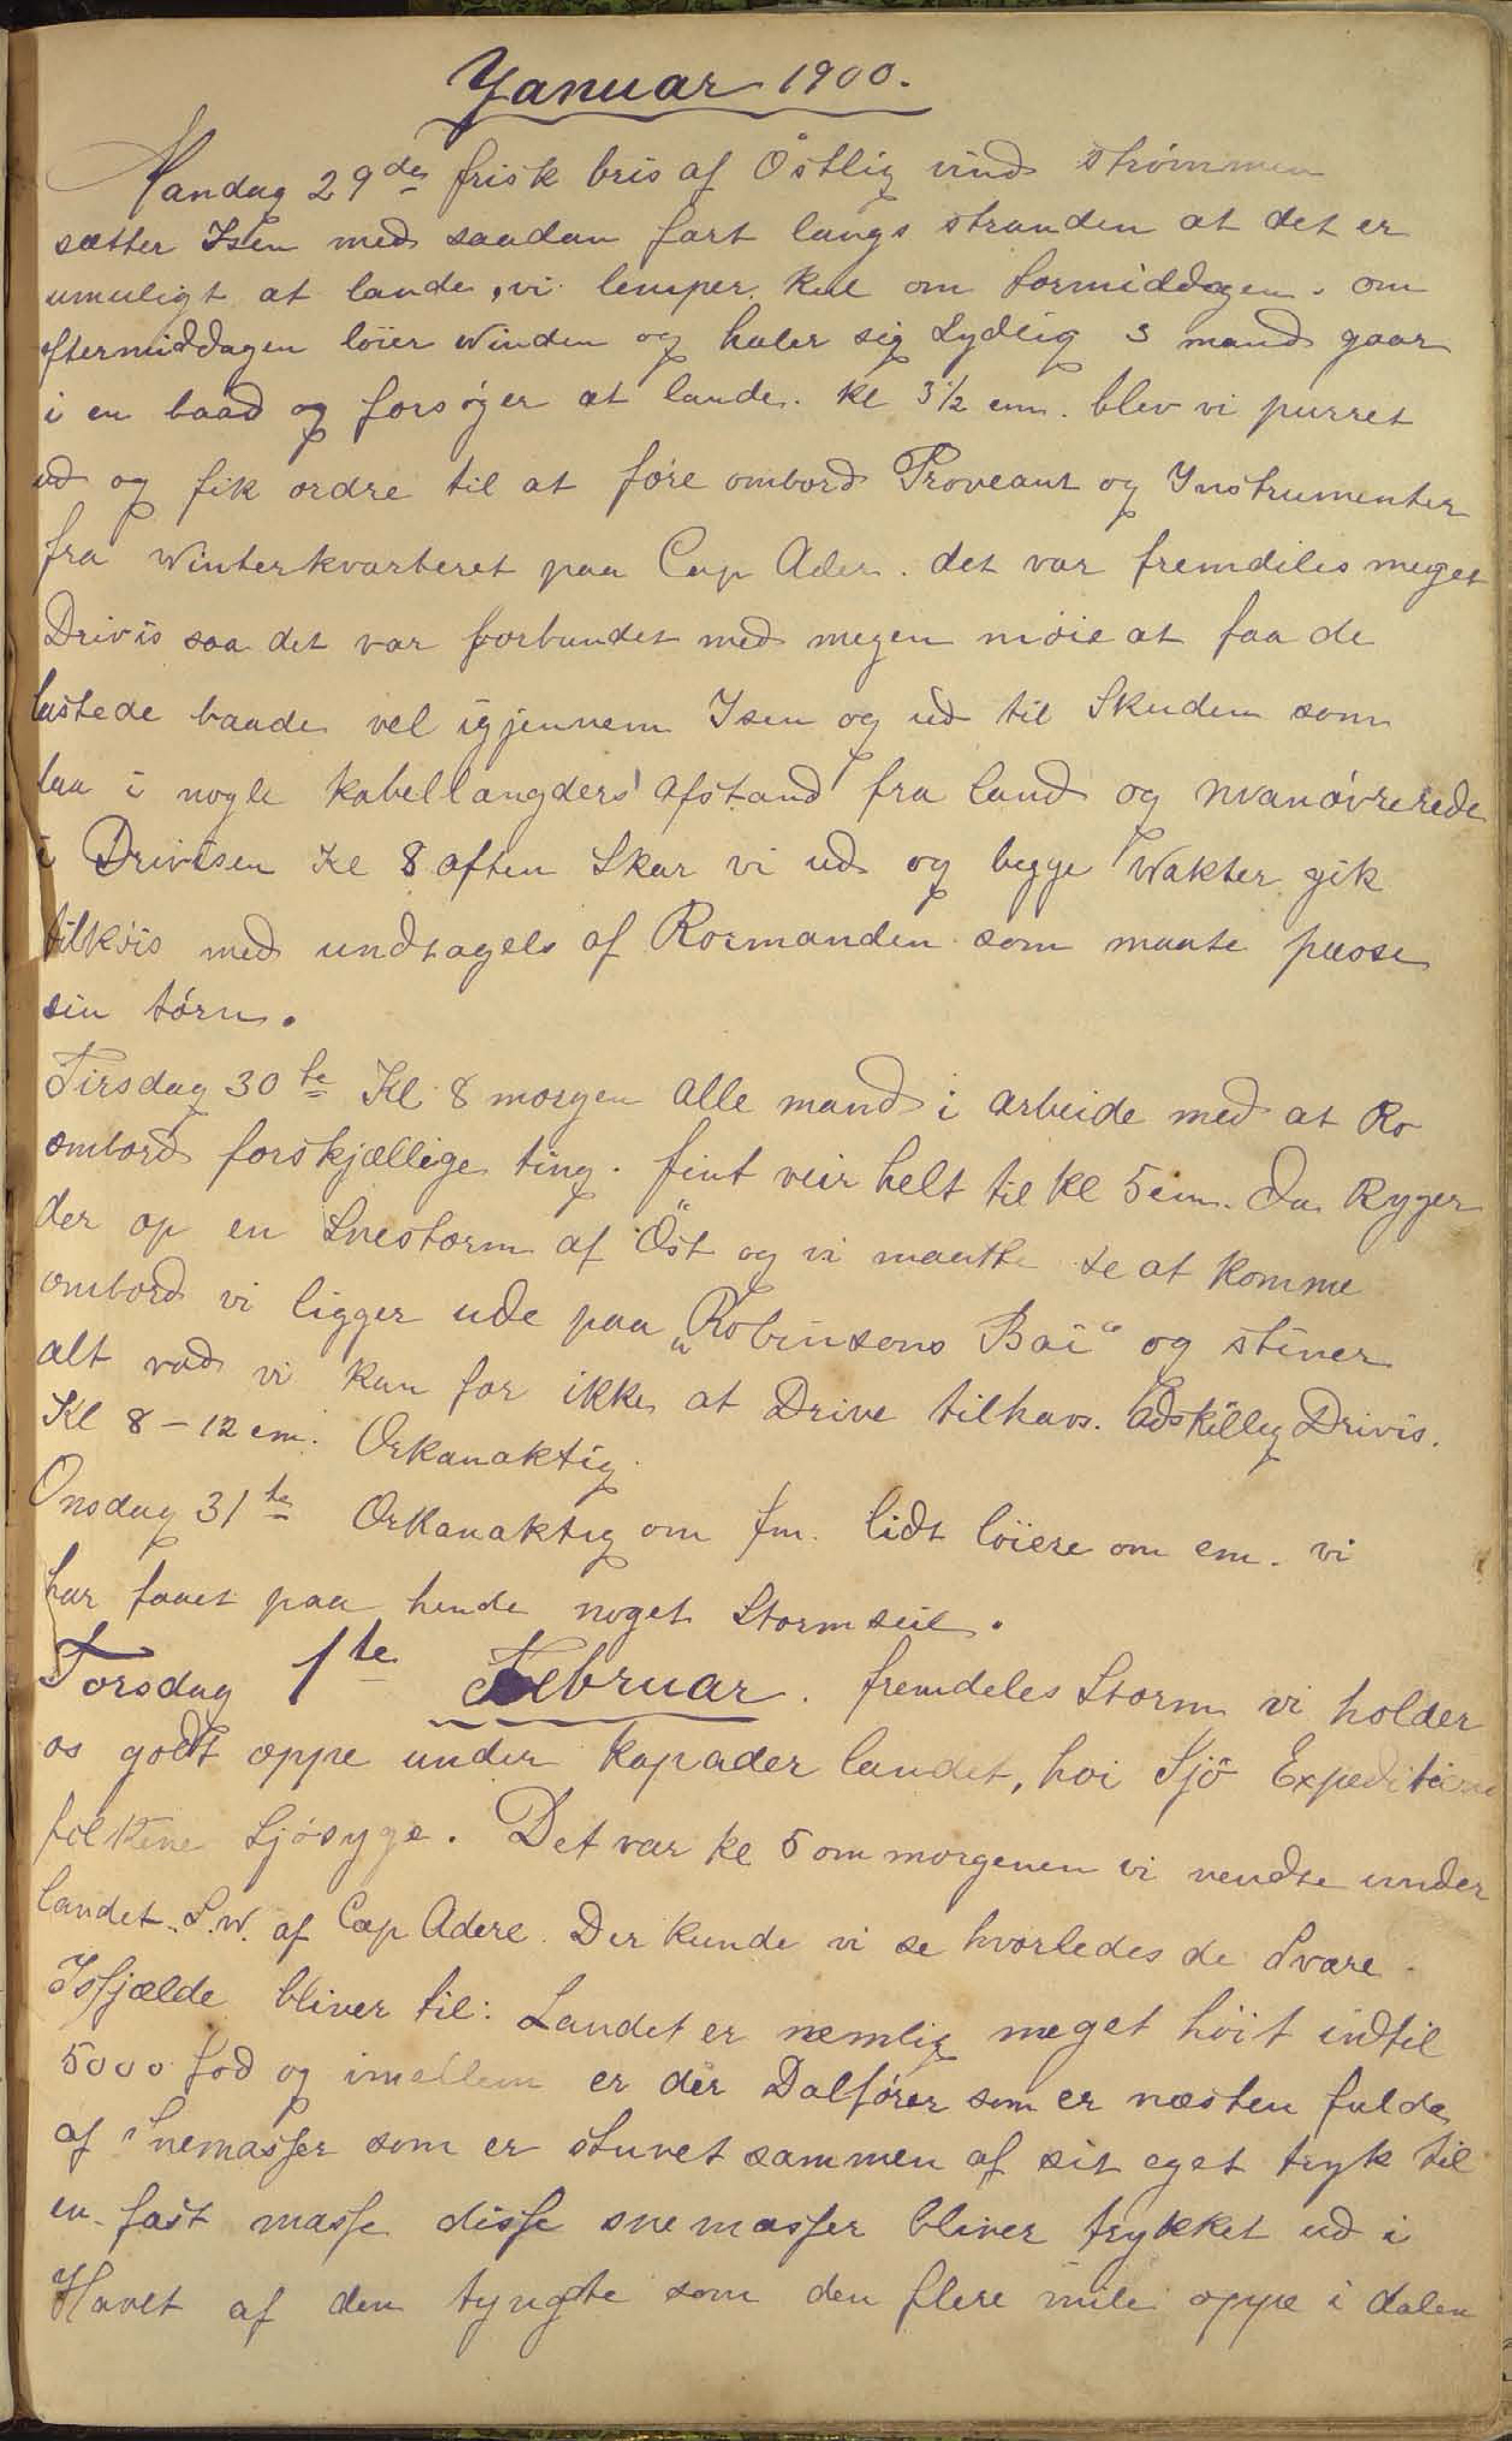 Januar 1900.
Mandag 29de frisk bris af Östlig vind strömmen
sætter Isen med saadan fart langs stranden at det er
umuligt at lande, vi lemper kul om formiddagen. om
eftermiddagen löier Winden og haler sig Sydlig 3 mand gaar
i en baad og forsöger at lande. Kl 3½ em. blev vi purret
ud og fik ordre til at före ombord Proveant og Instrumenter
fra Winterkvarteret paa Cap Ader. det var fremdiles meget
Drivis saa det var forbundet med megen möie at faa de
lastede baade vel igjennem Isen og ud til Skuden som
laa i nogle kabellangders afstand fra land og manövrerede
i Drivisen Kl 8 aften Skar vi ud og begge Wakter gik
tilköis med undtagels af Rormanden som maate passe
sin törn.
Tirsdag 30te Kl 8 morgen alle mand i arbeide med at Ro
ombord forskjællige ting. fint veir helt til kl 5 em. Da Ryger
der op en Snestorm af Öst og vi maatte se at komme
ombord vi ligger ude paa „Robinsons Bai“ og stimer
alt vad vi kan for ikke at Drive tilhavs. adskillig Drivis.
Kl 8 – 12 em. Orkanaktig.
Onsdag 31te Orkanaktig om fm. lidt löiere om em. vi
har faaet paa hende noget Stormseil.
Torsdag 1te Februar. fremdeles Storm vi holder
os godt oppe under Kapader landet, hoi Sjö Expeditions
folkene Sjösyge. Det var kl 5 om morgenen vi vendte under
landet S.W. af Cap Adere. Der kunde vi se hvorledes de Svære
Isfjælde bliver til: Landet er nemlig meget höit indtil
5000 fod og imellem er der Dalförer som er næsten fulde
af Snemasser som er stuvet sammen af sit eget tryk til
en fast masse disse snemasser bliver trykket ud i
Havet af den tyngte som den flere mile oppe i dalen